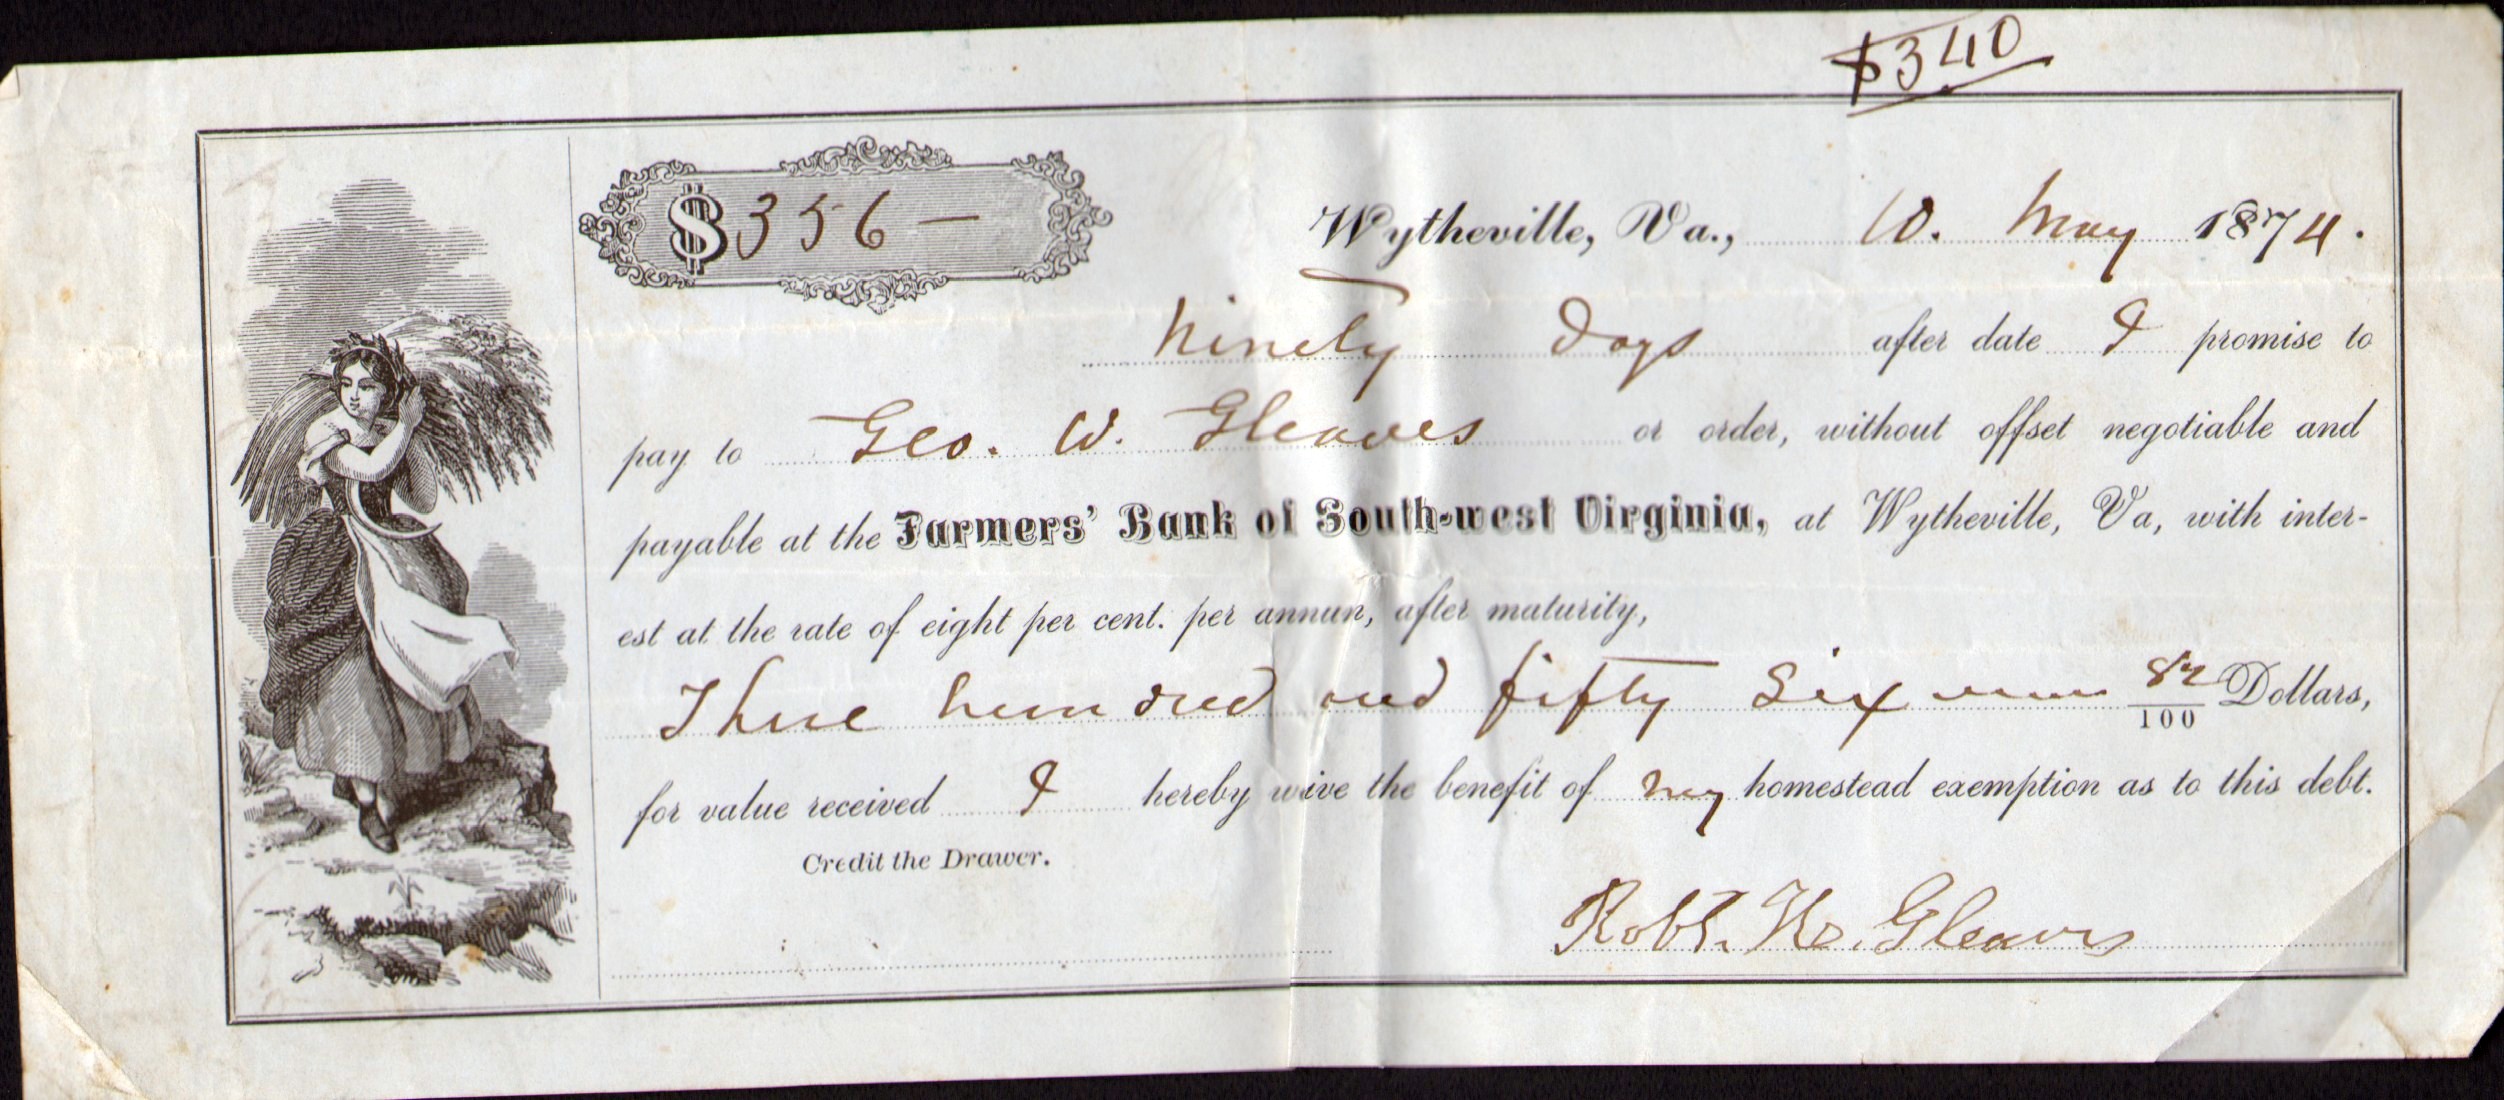 $340
$356 —
Wytheville, Va., 10. May 1874.
Ninety Days after date I promise to
pay to Geo. W. Gleaves or order, without offset negotiable and
payable at the Farmers' Bank of South-west Virginia, at Wytheville, Va, with inter-
est at the rate of eight per cent. per annun, after maturity,
Three hundred and fifty Six 82/100 Dollars,
for value received I hereby wive the benefit of my homestead exemption as to this debt.
Credit the Drawer.
Robt. Gleaves